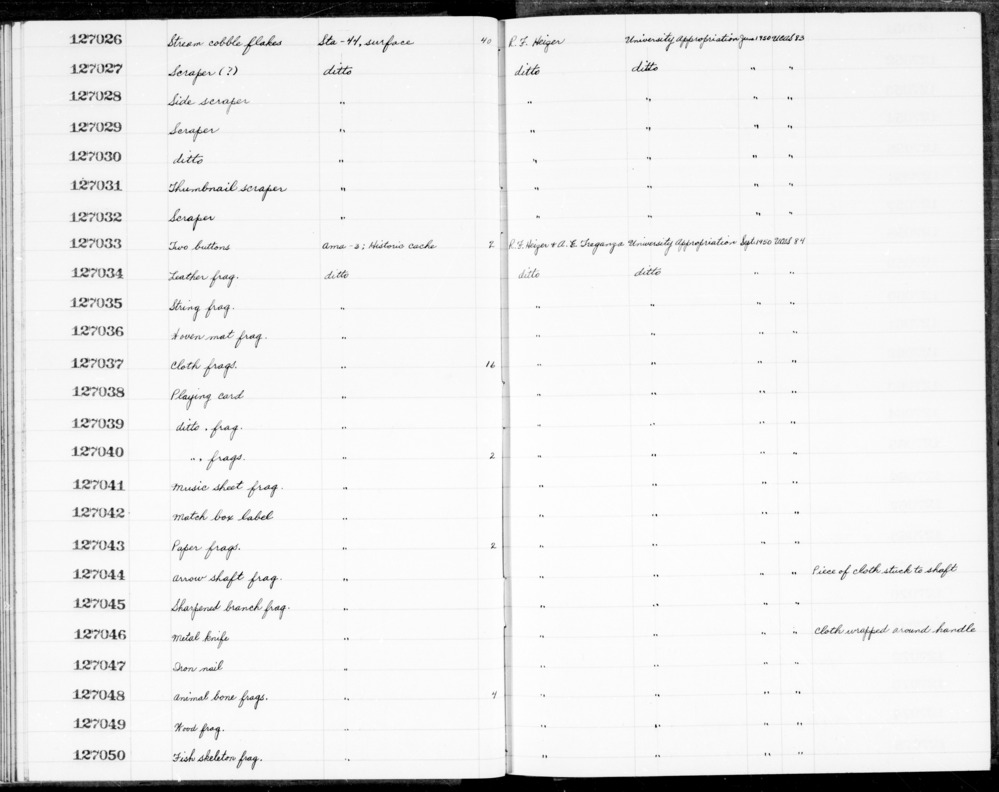 127026 Stream cobble flakes Sta-44, surface 40 R. F. Heizer University Appropriation Jun 1950 UCAS 83
127027 Scraper (?) ditto ditto ditto " "
127028 Side scraper " " " " "
127029 Scraper " " " " "
127030 ditto " " " " "
127031 Thumbnail scraper " " " " "
127032 Scraper " " " " "
127033 Two buttons Ama-3; Historic cache 2 R. F. Heizer & A. E. Treganza University Appropriation Sept 1950 UCAS 84
127034 Leather frag. ditto ditto ditto " "
127035 String frag. " " " " "
127036 Woven mat frag. " " " " "
127037 Cloth frags. " 16 " " " "
127038 Playing card " " " " "
127039 ditto . frag. " " " " "
127040 " . frags. " 2 " " " "
127041 Music sheet frag. " " " " "
127042 Match box label " " " " "
127043 Paper frags. " 2 " " " "
127044 Arrow shaft frag. " " " " " Piece of cloth stuck to shaft
127045 Sharpened branch frag. " " " " "
127046 Metal knife " " " " " Cloth wrapped around handle
127047 Iron nail " " " " "
127048 Animal bone frags. " 4 " " " "
127049 Wood frag. " " " " "
127050 Fish skeleton frag. " " " " "